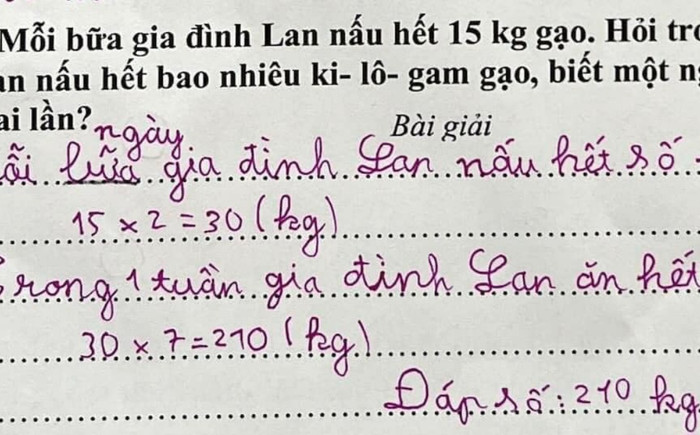 Mỗi bữa gia đình Lan nấu hết 15 kg gạo. Hỏi
nấu hết bao nhiêu ki- lô- gam gạo, biết một
lần?
ngày
Bài giải
bữa gia đình Lan nấu hết số
15 × 2 = 30 (kg)
Trong 1 tuần gia đình Lan ăn hết
30 × 7 = 210 (kg)
Đáp số: 210 kg